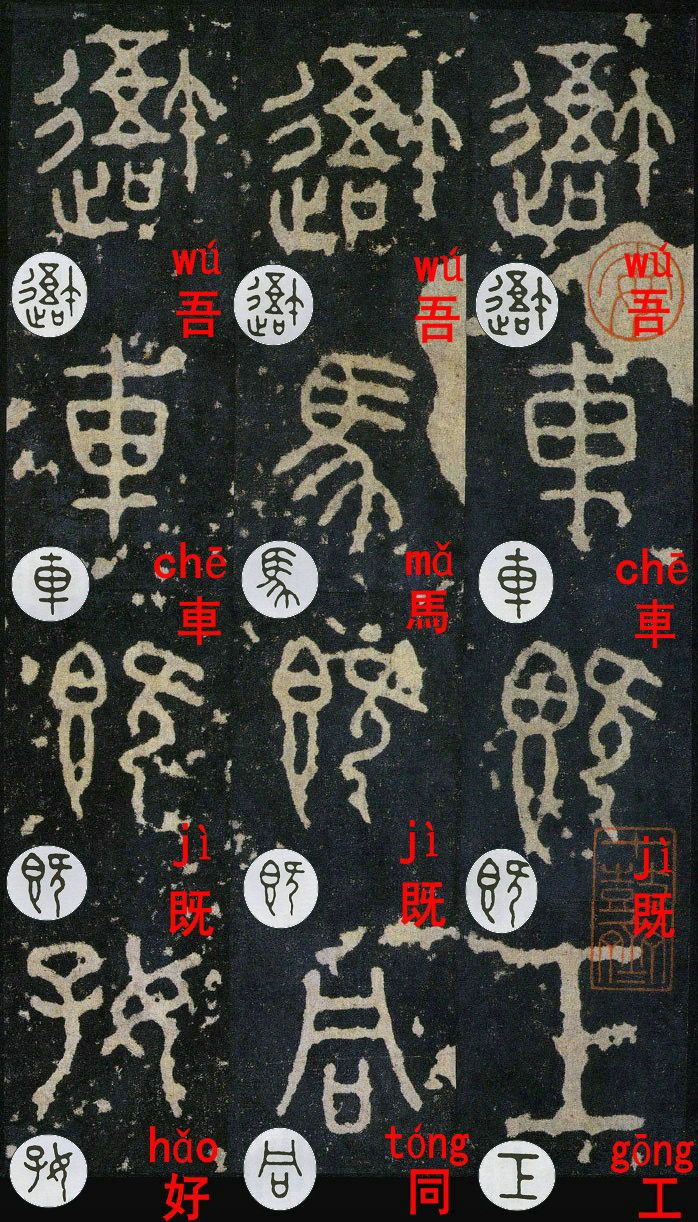 wú
吾
chē
車
jì
既
gōng
工
wú
吾
mǎ
馬
jì
既
tóng
同
wú
吾
chē
車
jì
既
hǎo
好